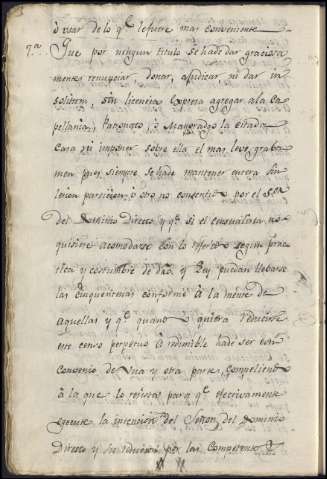 ò usar de lo qᵉ le fuere mas conveniente
7ª Que por ningun titulo se ha de dar graciosa
mente renunciar, donar, adjudicar, ni dar in
solutum, sin licencia expresa agregar a la Ca
pellania, Patronato, ò Mayorazgo la citada
Casa ni imponer sobre ella el mas leve graba
men pues siempre se ha de mantener entera sin
particion, ò otro no consentido por el Señor
del Dominio Directo y qᵉ si el censualista no
quisiere acomodarse con lo referido segun prac
tica y costumbre de dar y puedan llebarse
las Cinquentenas conforme à la mente de
aquellas y qᵉ quando quiera reducirse
este censo perpetuo à redimible ha de ser con
convenio de una y otra parte, compeliendo
à la que lo resista para qᵉ efectivamente
del Señor del dominio
Directo y por las Competente